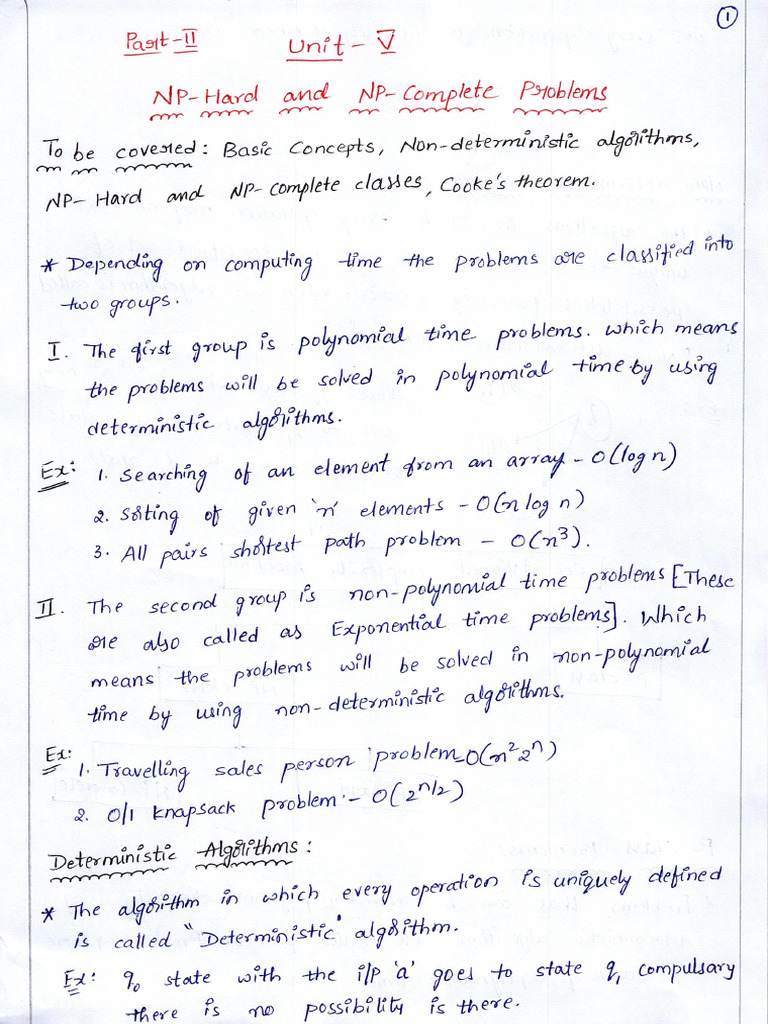 1
Part-II Unit-V
NP-Hard and NP-Complete Problems
To be covered: Basic Concepts, Non-deterministic algorithms,
NP-Hard and NP-complete classes, Cooke's theorem.
* Depending on computing time the problems are classified into
two groups.
I. The first group is polynomial time problems. which means
the problems will be solved in polynomial time by using
deterministic algorithms.
Ex: 1. Searching of an element from an array - O(log n)
2. Sorting of given 'n' elements - O(n log n)
3. All pairs shortest path problem - O(n³).
II. The second group is non-polynomial time problems [These
are also called as Exponential time problems]. Which
means the problems will be solved in non-polynomial
time by using non-deterministic algorithms.
Ex:
1. Travelling sales person problem - O(n² 2ⁿ)
2. 0/1 knapsack problem - O(2^n/2)
Deterministic Algorithms:
* The algorithm in which every operation is uniquely defined
is called "Deterministic" algorithm.
Ex: q₀ state with the i/p 'a' goes to state q₁ compulsary
there is no possibility is there.